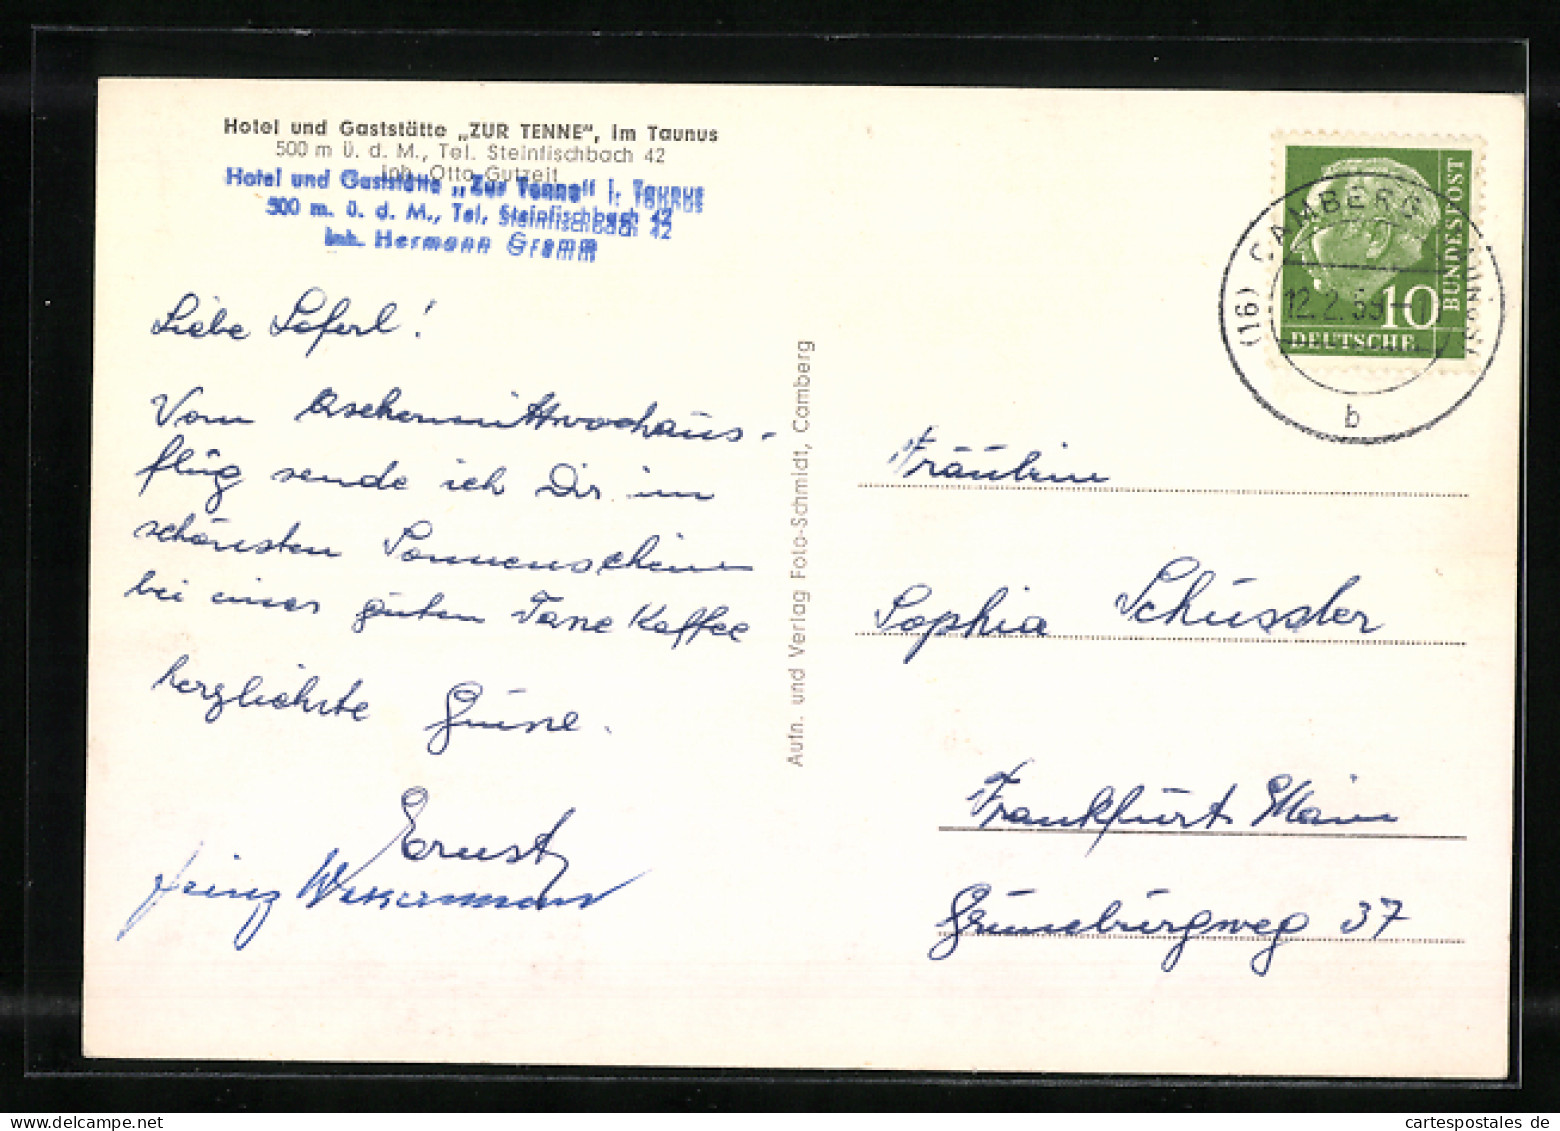 Hotel und Gaststätte „ZUR TENNE", im Taunus
500 m ü. d. M., Tel. Steinfischbach 42
Inh. Otto Gutzeit
Hotel und Gaststätte „Zur Tenne" i. Taunus
500 m. ü. d. M., Tel. Steinfischbach 42
Inh. Hermann Gramm
Liebe Soferl!
Vom Aschermittwochaus-
flug sende ich Dir im
schönsten Sonnenschein
bei einer guten Tasse Kaffee
herzlichste Grüsse.
Ernst
Heinz
Aufn. und Verlag Foto-Schmidt, Camberg
BUNDESPOST
10
DEUTSCHE
(16) CAMBERG
12.2.59
b
Fräulein
Sophia Schüssler
Frankfurt Main
Grüneburgweg 37
cartespostales de